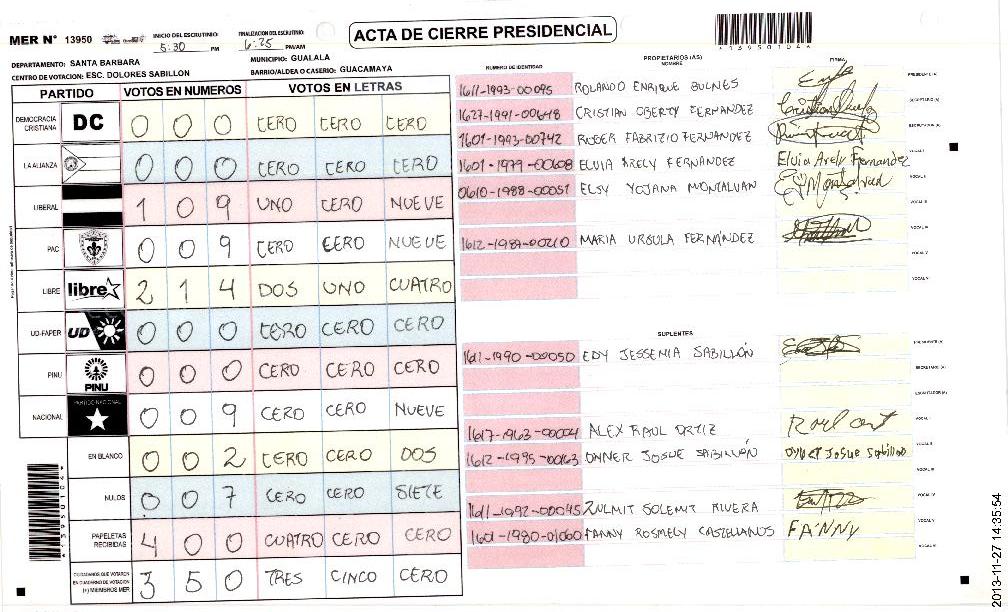 MER N° 13950
INICIO DEL ESCRUTINIO 5:30 PM
FINALIZACION DEL ESCRUTINIO 6:25 PM/AM
ACTA DE CIERRE PRESIDENCIAL
139501044
DEPARTAMENTO: SANTA BARBARA
MUNICIPIO: GUALALA
CENTRO DE VOTACION: ESC. DOLORES SABILLON
BARRIO/ALDEA O CASERIO: GUACAMAYA
PARTIDO VOTOS EN NUMEROS VOTOS EN LETRAS
DEMOCRACIA CRISTIANA DC 0 0 0 CERO CERO CERO
LA ALIANZA 0 0 0 CERO CERO CERO
LIBERAL 1 0 9 UNO CERO NUEVE
PAC 0 0 9 CERO CERO NUEVE
LIBRE libre 2 1 4 DOS UNO CUATRO
UD-FAPER UD 0 0 0 CERO CERO CERO
PINU PINU 0 0 0 CERO CERO CERO
NACIONAL PARTIDO NACIONAL 0 0 9 CERO CERO NUEVE
EN BLANCO 0 0 2 CERO CERO DOS
NULOS 0 0 7 CERO CERO SIETE
PAPELETAS RECIBIDAS 4 0 0 CUATRO CERO CERO
CIUDADANOS QUE VOTARON EN CUADERNO DE VOTACION (+) MIEMBROS MER 3 5 0 TRES CINCO CERO
PROPIETARIOS (AS)
NUMERO DE IDENTIDAD NOMBRE FIRMA
1611-1993-00095 ROLANDO ENRIQUE BULNES PRESIDENTE (A)
1627-1991-00648 CRISTIAN OBERTY FERNANDEZ SECRETARIO (A)
1601-1993-00742 ROGER FABRIZIO FERNANDEZ ESCRUTADOR (A)
1601-1979-00608 ELVIA ARELY FERNANDEZ Elvia Arely Fernandez VOCAL I
0610-1988-00051 ELSY YOJANA MONTALVAN VOCAL II
VOCAL III
1612-1987-00210 MARIA URSULA FERNANDEZ VOCAL IV
VOCAL V
VOCAL VI
SUPLENTES
1611-1990-00050 EDY JESSENIA SABILLÓN PRESIDENTE (A)
SECRETARIO (A)
ESCRUTADOR (A)
1617-1963-00004 ALEX RAUL ORTIZ VOCAL I
1612-1995-00163 OYNER JOSUE SABILLÓN VOCAL II
VOCAL III
1611-1992-00045 ZULMIT SOLEMT RIVERA VOCAL IV
1601-1980-01060 FANNY ROSMELY CASTELLANOS FANNY VOCAL V
VOCAL VI
2013-11-27 14:35:54